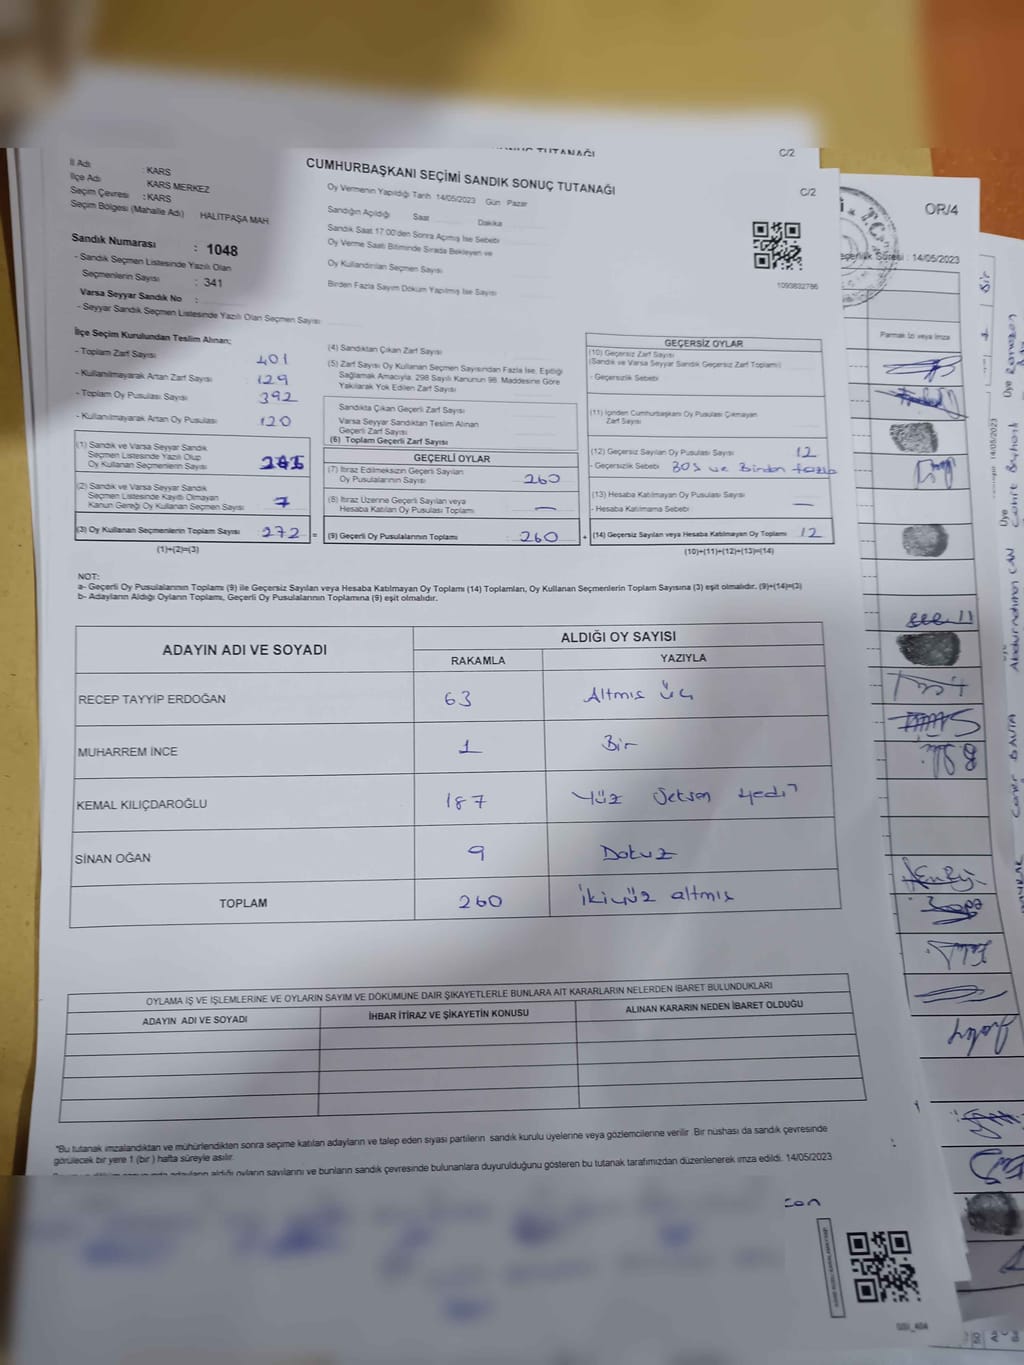 C/2
CUMHURBAŞKANI SEÇİMİ SANDIK SONUÇ TUTANAĞI
C/2
İl Adı : KARS
İlçe Adı : KARS MERKEZ
Seçim Çevresi : KARS
Seçim Bölgesi (Mahalle Adı) HALİTPAŞA MAH
Sandık Numarası : 1048
- Sandık Seçmen Listesinde Yazılı Olan
Seçmenlerin Sayısı : 341
Varsa Seyyar Sandık No :
- Seyyar Sandık Seçmen Listesinde Yazılı Olan Seçmen Sayısı
Oy Vermenin Yapıldığı Tarih 14/05/2023 Gün Pazar
Sandığın Açıldığı Saat Dakika
Sandık Saat 17:00'den Sonra Açmış İse Sebebi
Oy Verme Saati Bitiminde Sırada Bekleyen ve
Oy Kullandırılan Seçmen Sayısı
Birden Fazla Sayım Döküm Yapılmış İse Sayısı
1093832786
İlçe Seçim Kurulundan Teslim Alınan;
- Toplam Zarf Sayısı 401
- Kullanılmayarak Artan Zarf Sayısı 129
- Toplam Oy Pusulası Sayısı 392
- Kullanılmayarak Artan Oy Pusulası 120
(1) Sandık ve Varsa Seyyar Sandık
Seçmen Listesinde Yazılı Olup
Oy Kullanan Seçmenlerin Sayısı
(2) Sandık ve Varsa Seyyar Sandık
Seçmen Listesinde Kayıtlı Olmayan
Kanun Gereği Oy Kullanan Seçmen Sayısı 7
(3) Oy Kullanan Seçmenlerin Toplam Sayısı 272 =
(1)+(2)=(3)
(4) Sandıktan Çıkan Zarf Sayısı
(5) Zarf Sayısı Oy Kullanan Seçmen Sayısından Fazla İse, Eşitliği
Sağlamak Amacıyla, 298 Sayılı Kanunun 98. Maddesine Göre
Yakılarak Yok Edilen Zarf Sayısı
Sandıkta Çıkan Geçerli Zarf Sayısı
Varsa Seyyar Sandıktan Teslim Alınan
Geçerli Zarf Sayısı
(6) Toplam Geçerli Zarf Sayısı
GEÇERLİ OYLAR
(7) İtiraz Edilmeksizin Geçerli Sayılan
Oy Pusulasının Sayısı 260
(8) İtiraz Üzerine Geçerli Sayılan veya
Hesaba Katılan Oy Pusulası Toplamı —
(9) Geçerli Oy Pusulalarının Toplamı : 260 +
GEÇERSİZ OYLAR
(10) Geçersiz Zarf Sayısı
(Sandık ve Varsa Seyyar Sandık Geçersiz Zarf Toplamı)
- Geçersizlik Sebebi
(11) İçinden Cumhurbaşkanı Oy Pusulası Çıkmayan
Zarf Sayısı
(12) Geçersiz Sayılan Oy Pusulası Sayısı 12
- Geçersizlik Sebebi BOŞ ve Birden fazla
(13) Hesaba Katılmayan Oy Pusulası Sayısı
- Hesaba Katılmama Sebebi —
(14) Geçersiz Sayılan veya Hesaba Katılmayan Oy Toplamı 12
(10)+(11)+(12)+(13)=(14)
NOT:
a- Geçerli Oy Pusulalarının Toplamı (9) ile Geçersiz Sayılan veya Hesaba Katılmayan Oy Toplamı (14) Toplamları, Oy Kullanan Seçmenlerin Toplam Sayısına (3) eşit olmalıdır. (9)+(14)=(3)
b- Adayların Aldığı Oyların Toplamı, Geçerli Oy Pusulalarının Toplamına (9) eşit olmalıdır.
ADAYIN ADI VE SOYADI ALDIĞI OY SAYISI
RAKAMLA YAZIYLA
RECEP TAYYİP ERDOĞAN 63 Altmış Üç
MUHARREM İNCE 1 Bir
KEMAL KILIÇDAROĞLU 187 Yüz Seksen Yedi
SİNAN OĞAN 9 Dokuz
TOPLAM 260 İkiyüz altmış
OYLAMA İŞ VE İŞLEMLERİNE VE OYLARIN SAYIM VE DÖKÜMÜNE DAİR ŞİKAYETLERLE BUNLARA AİT KARARLARIN NELERDEN İBARET BULUNDUKLARI
ADAYIN ADI VE SOYADI İHBAR İTİRAZ VE ŞİKAYETİN KONUSU ALINAN KARARIN NEDEN İBARET OLDUĞU
"Bu tutanak imzalandıktan ve mühürlendikten sonra seçime katılan adayların ve talep eden siyasi partilerin sandık kurulu üyelerine veya gözlemcilerine verilir. Bir nüshası da sandık çevresinde
görülecek bir yere 1 (bir) hafta süreyle asılır.
adayların aldığı oyların sayılarını ve bunların sandık çevresinde bulunanlara duyurulduğunu gösteren bu tutanak tarafımızdan düzenlenerek imza edildi. 14/05/2023
OR/4
T.C.
Süresi : 14/05/2023
Parmak İzi veya İmza
Bir
14/05/2023
Üye